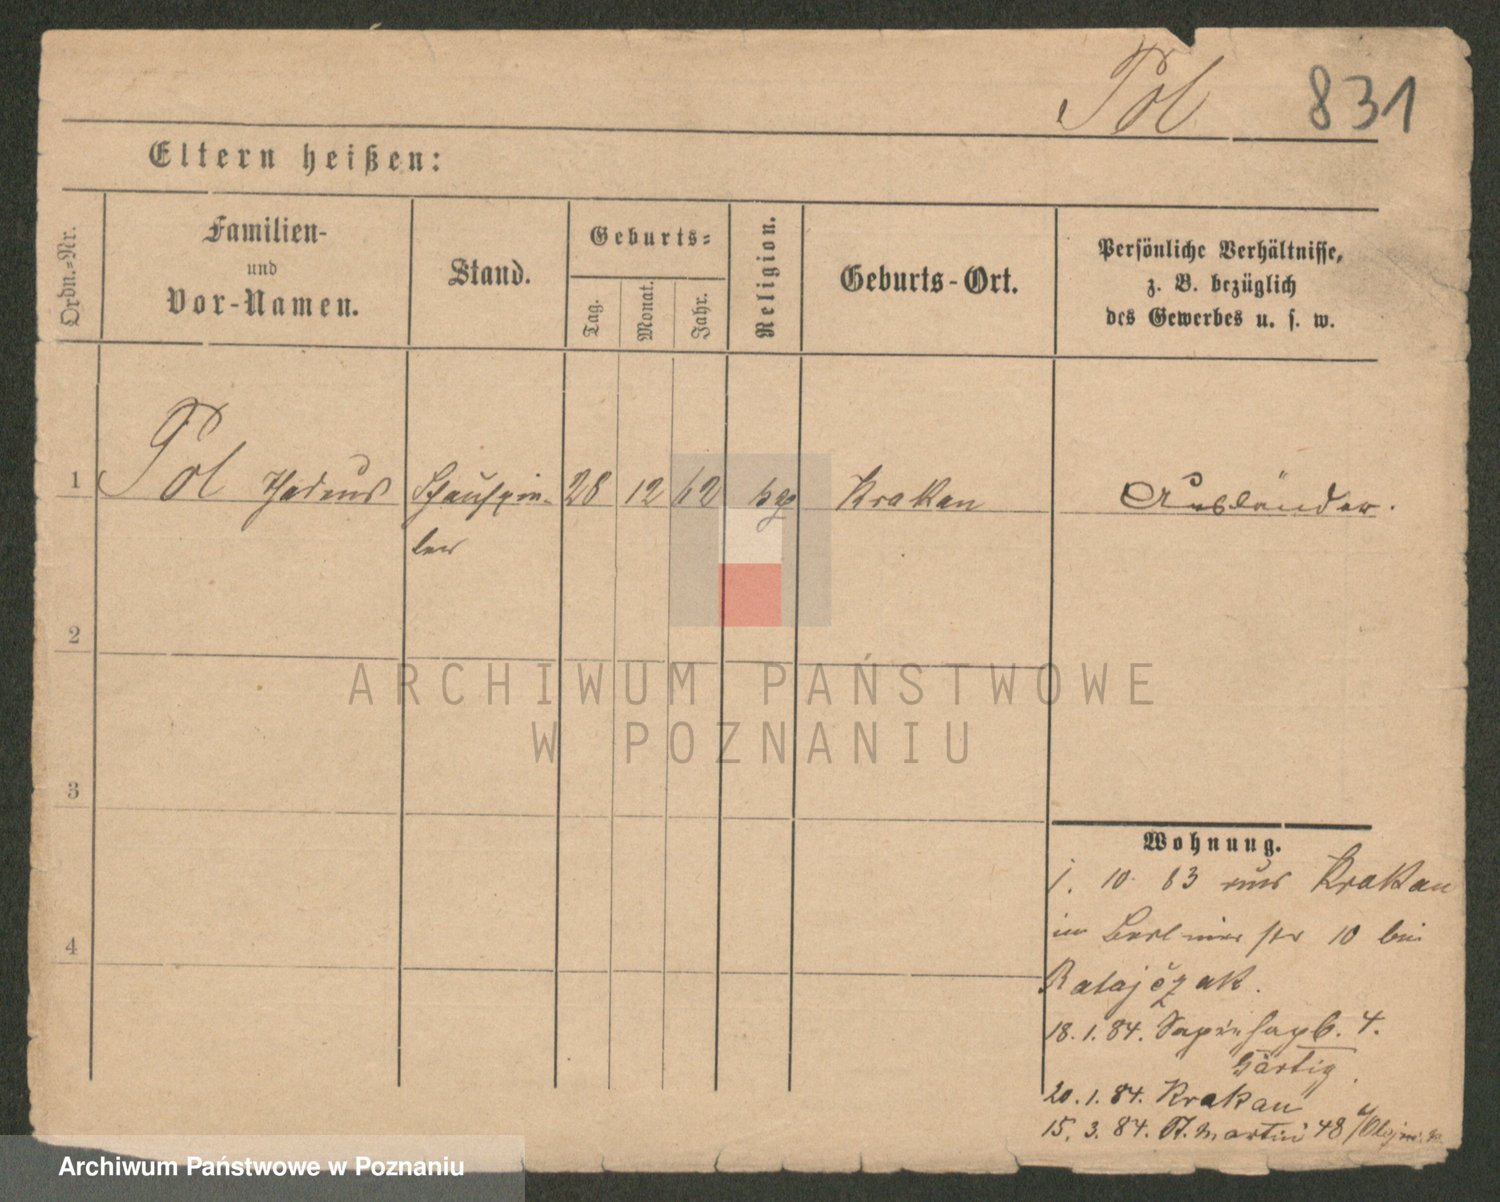 Pol 831
Eltern heißen:
Ordn.-Nr.
Familien-
und
Vor-Namen.
Stand.
Geburts-
Tag.
Monat.
Jahr.
Religion.
Geburts-Ort.
Persönliche Verhältnisse,
z. B. bezüglich
des Gewerbes u. s. w.
1 Pol Thadeus Schauspie- 28 12 62 Krakau Ausländer.
ler
2
3
4
ARCHIWUM PAŃSTWOWE
W POZNANIU
Wohnung.
1. 10 83 aus Krakau
in Berliner str 10 bei
Ratajczak.
18. 1. 84. 4.
Gärtig
20. 1. 84. Krakau
15. 3. 84. St. Martin 48
Archiwum Państwowe w Poznaniu